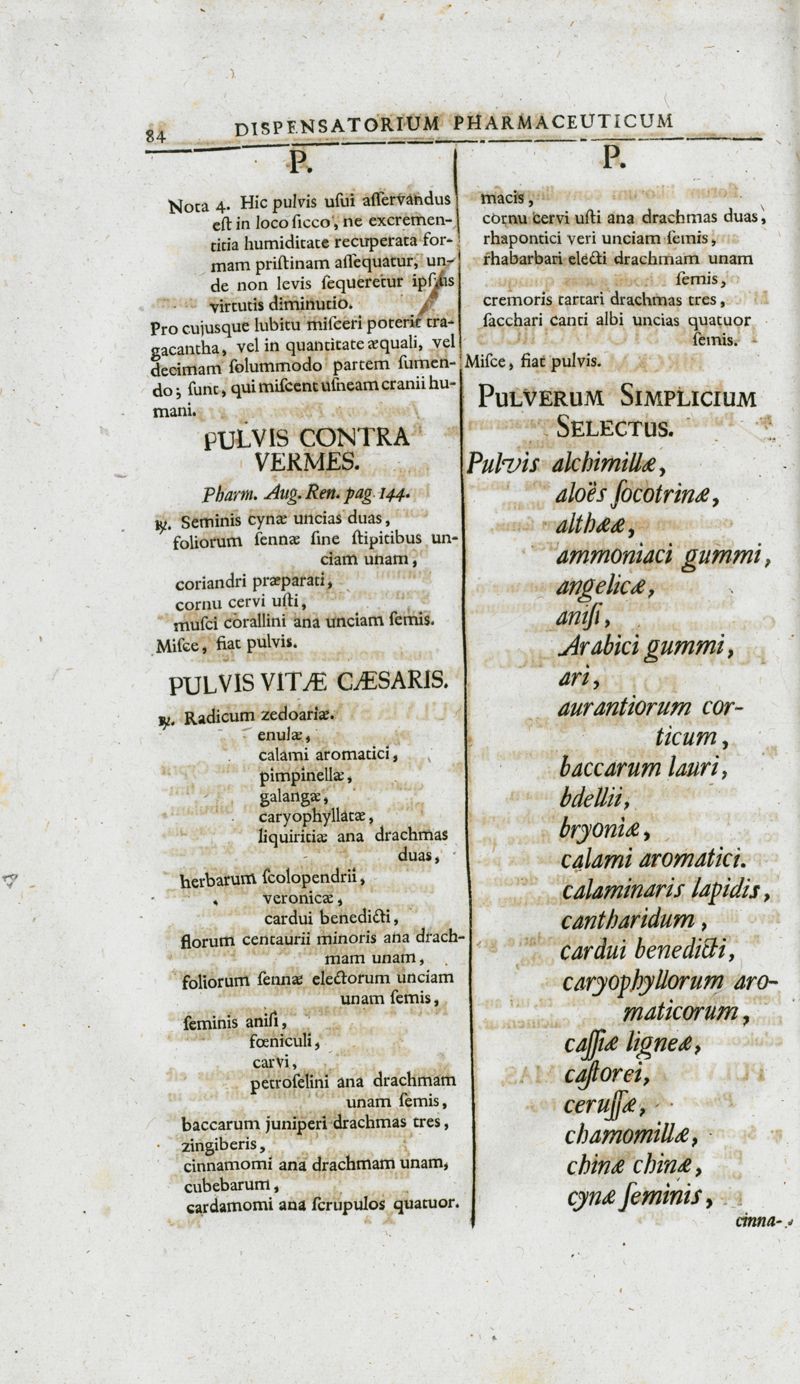 84 DISPENSATORIUM PHARMACEUTICUM
P.
Nota 4. Hic pulvis uſui aſſervandus
eſt in loco ſicco, ne excremen-
titia humiditate recuperata for-
mam priſtinam aſſequatur, un-
de non levis ſequeretur ipſius
virtutis diminutio.
Pro cujusque lubitu miſceri poterit tra-
gacantha, vel in quantitate æquali, vel
decimam ſolummodo partem ſumen-
do; ſunt, qui miſcent uſneam cranii hu-
mani.
PULVIS CONTRA
VERMES.
Pharm. Aug. Ren. pag. 144.
℞. Seminis cynæ uncias duas,
foliorum ſennæ ſine ſtipitibus un-
ciam unam,
coriandri præparati,
cornu cervi uſti,
muſci corallini ana unciam ſemis.
Miſce, fiat pulvis.
PULVIS VITÆ CÆSARIS.
℞. Radicum zedoariæ.
enulæ,
calami aromatici,
pimpinellæ,
galangæ,
caryophyllatæ,
liquiritiæ ana drachmas
duas,
herbarum ſcolopendrii,
veronicæ,
cardui benedicti,
florum centaurii minoris ana drach-
mam unam,
foliorum ſennæ electorum unciam
unam ſemis,
ſeminis aniſi,
fœniculi,
carvi,
petroſelini ana drachmam
unam ſemis,
baccarum juniperi drachmas tres,
zingiberis,
cinnamomi ana drachmam unam,
cubebarum,
cardamomi ana ſcrupulos quatuor.
P.
macis,
cornu cervi uſti ana drachmas duas,
rhapontici veri unciam ſemis,
rhabarbari electi drachmam unam
ſemis,
cremoris tartari drachmas tres,
ſacchari canti albi uncias quatuor
ſemis.
Miſce, fiat pulvis.
PULVERUM SIMPLICIUM
SELECTUS.
Pulvis alchimillæ,
aloës ſocotrinæ,
althææ,
ammoniaci gummi,
angelicæ,
aniſi,
Arabici gummi,
ari,
aurantiorum cor-
ticum,
baccarum lauri,
bdellii,
bryoniæ,
calami aromatici.
calaminaris lapidis,
cantharidum,
cardui benedicti,
caryophyllorum aro-
maticorum,
caſſiæ ligneæ,
caſtorei,
ceruſſæ,
chamomillæ,
chinæ chinæ,
cynæ ſeminis,
cinna-